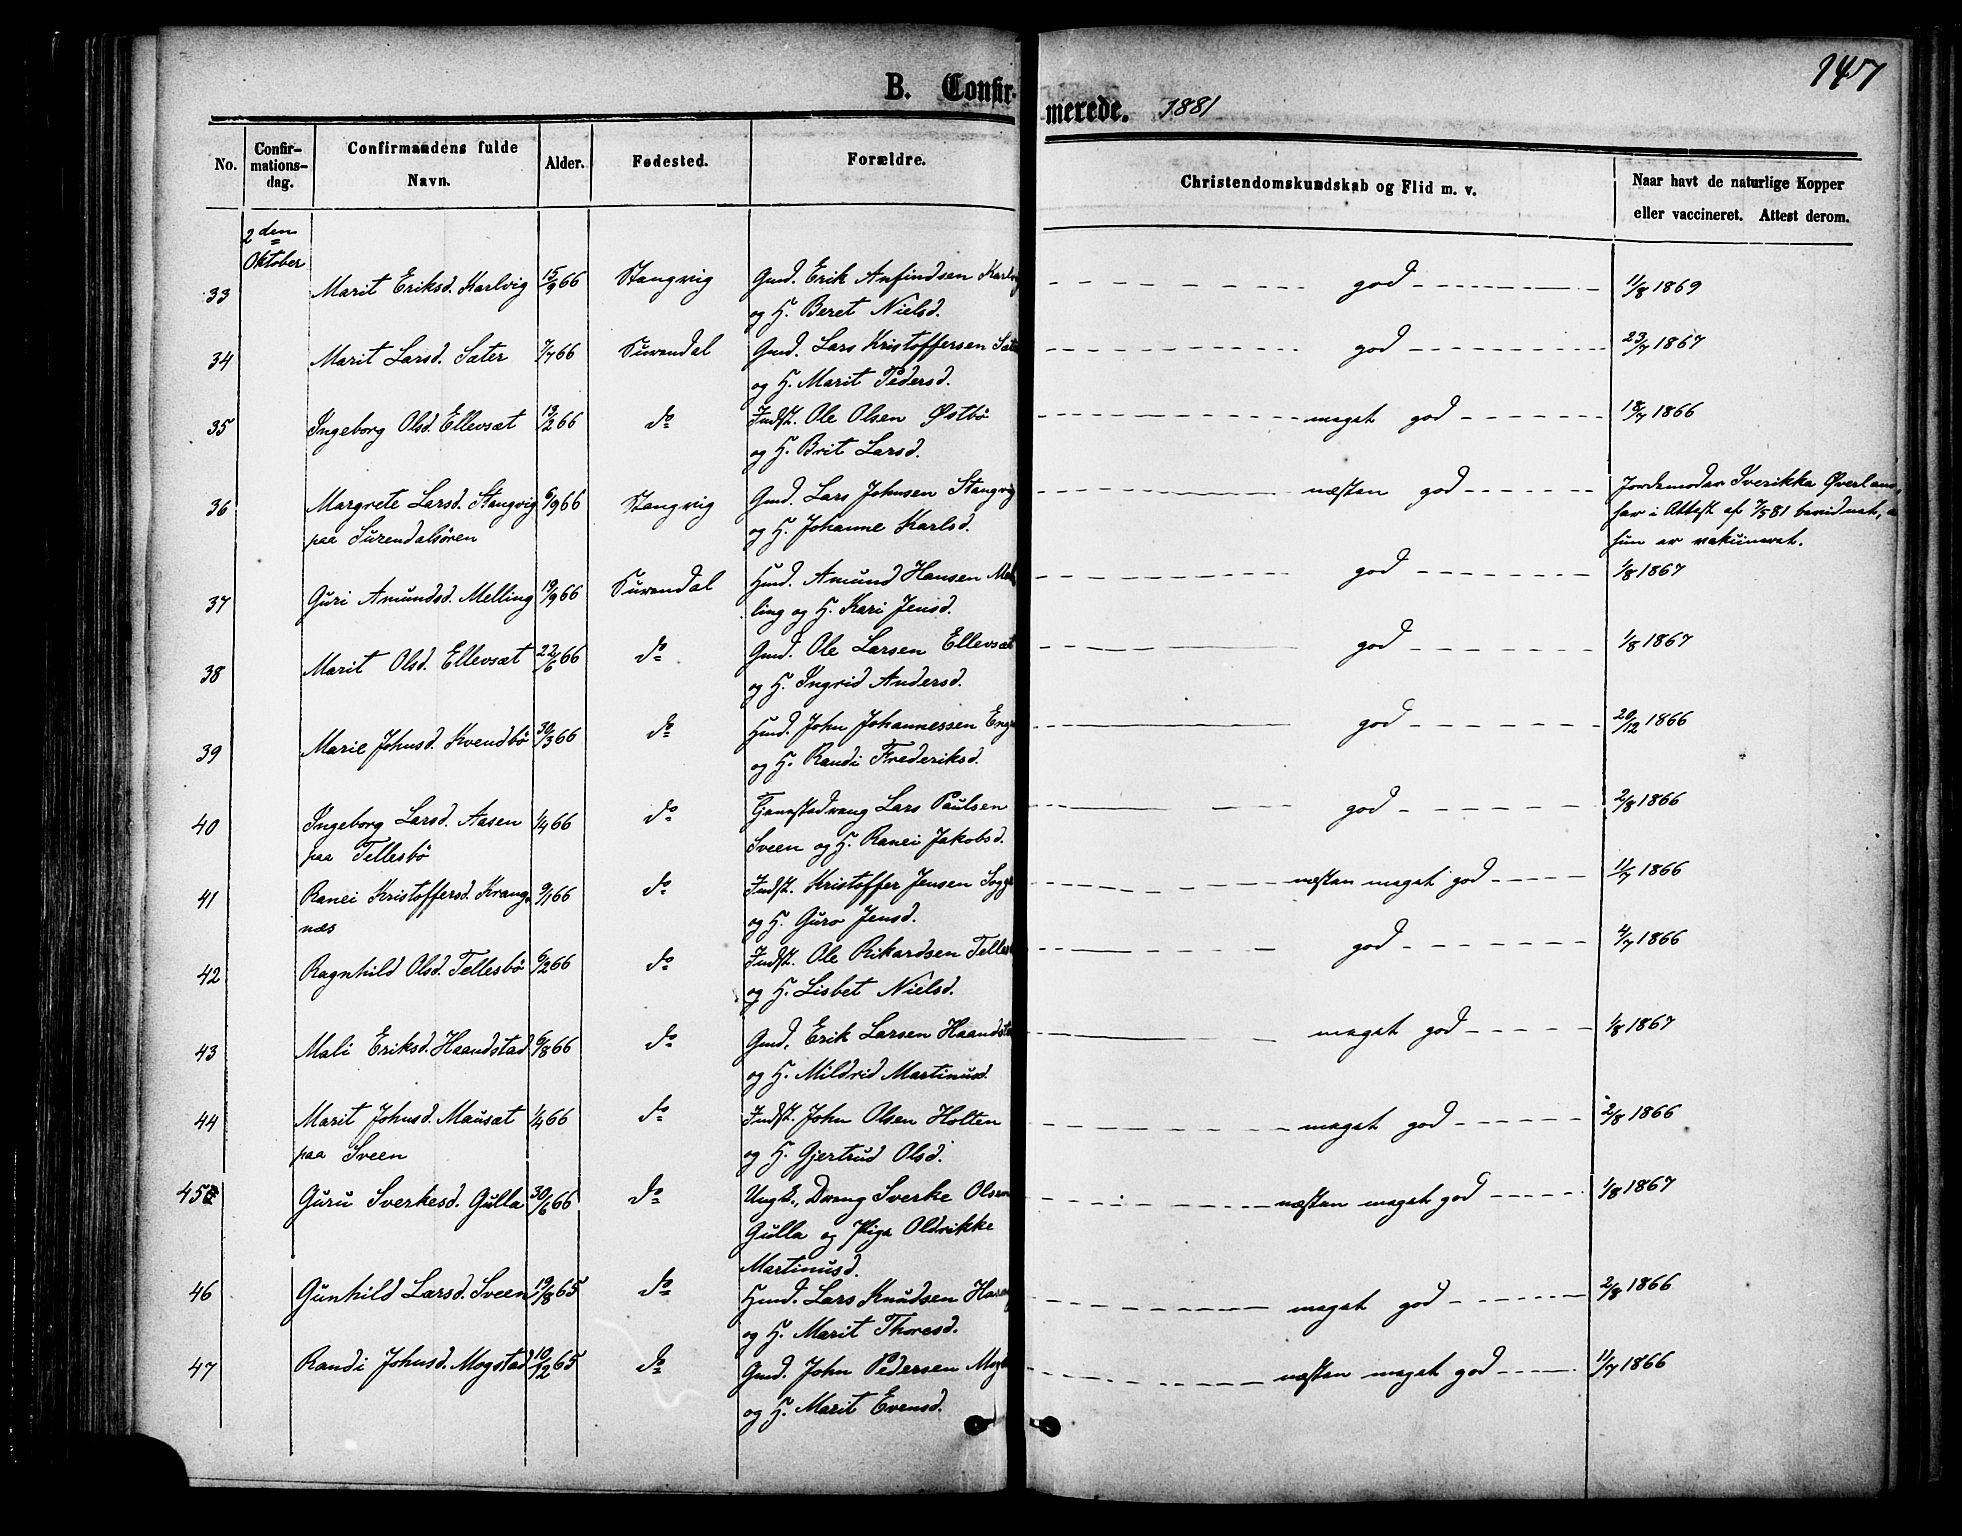 147
B. Confir-
merede. 1881
No. Confir-mations-dag. Confirmandens fulde Navn. Alder. Fødested. Forældre. Christendomskundskab og Flid m. v. Naar havt de naturlige Kopper eller vaccineret. Attest derom.
2den
Oktober
33 Marit Eriksd. Karlvig 15/9 66 Stangvig Gmd. Erik Anfindsen Karlvig god 11/8 1869
og H. Beret Nielsd.
34 Marit Larsd. Sæter 7/7 66 Surendal Gmd. Lars Kristoffersen Sæt god 23/7 1867
og H. Marit Pedersd.
35 Ingeborg Olsd. Ellevsæt 13/2 66 do Indst. Ole Olsen Østbö meget god 18/7 1866
og H. Brit Larsd.
36 Margrete Larsd. Stangvig 6/9 66 Stangvig Gmd. Lars Johnsen Stangvig næsten god Jordemoder Sverikka Øverland,
paa Surendalsören og H. Johanne Karlsd. har i Attest af 7/5 81 bevidnet, a
hun er vakcineret.
37 Guri Amundsd. Melling 19/9 66 Surendal Hmd. Amund Hansen Mel god 1/8 1867
ling og H. Kari Jensd.
38 Marit Olsd. Ellevsæt 22/6 66 do Gmd. Ole Larsen Ellevsæt god 1/8 1867
og H. Ingrid Andersd.
39 Marie Johnsd. Kvendbö 30/3 66 do Hmd. John Johannessen Eng god 20/12 1866
og H. Randi Frederiksd.
40 Ingeborg Larsd. Aasen 1/4 66 do Tjenestedreng Lars Paulsen god 2/8 1866
paa Tellesbö Sveen og H. Ranei Jakobsd.
41 Ranei Kristoffersd. Krang- 9/1 66 do Indst. Kristoffer Jensen Sogg næsten meget god 11/7 1866
næs og H. Guro Jensd.
42 Ragnhild Olsd. Tellesbö 6/2 66 do Indst. Ole Rikardsen Telles god 4/7 1866
og H. Lisbet Nielsd.
43 Mali Eriksd. Haandstad 6/8 66 do Gmd. Erik Larsen Haandsta meget god 1/8 1867
og H. Mildrid Martinusd.
44 Marit Johnsd. Mausæt 1/4 66 do Indst. John Olsen Holten meget god 2/8 1866
paa Sveen og H. Gjertrud Olsd.
45 Guru Sverkesd. Gulla 30/6 66 do Ungk., Dreng Sverke Olsen næsten meget god 1/8 1867
Gulla og Pige Oldrikke
Martinusd.
46 Gunhild Larsd. Sveen 19/8 65 do Hmd. Lars Knudsen meget god 2/8 1866
og H. Marit Thoresd.
47 Randi Johnsd. Mogstad 10/12 65 do Gmd. John Pedersen Mog næsten meget god 11/7 1866
og H. Marit Evensd.